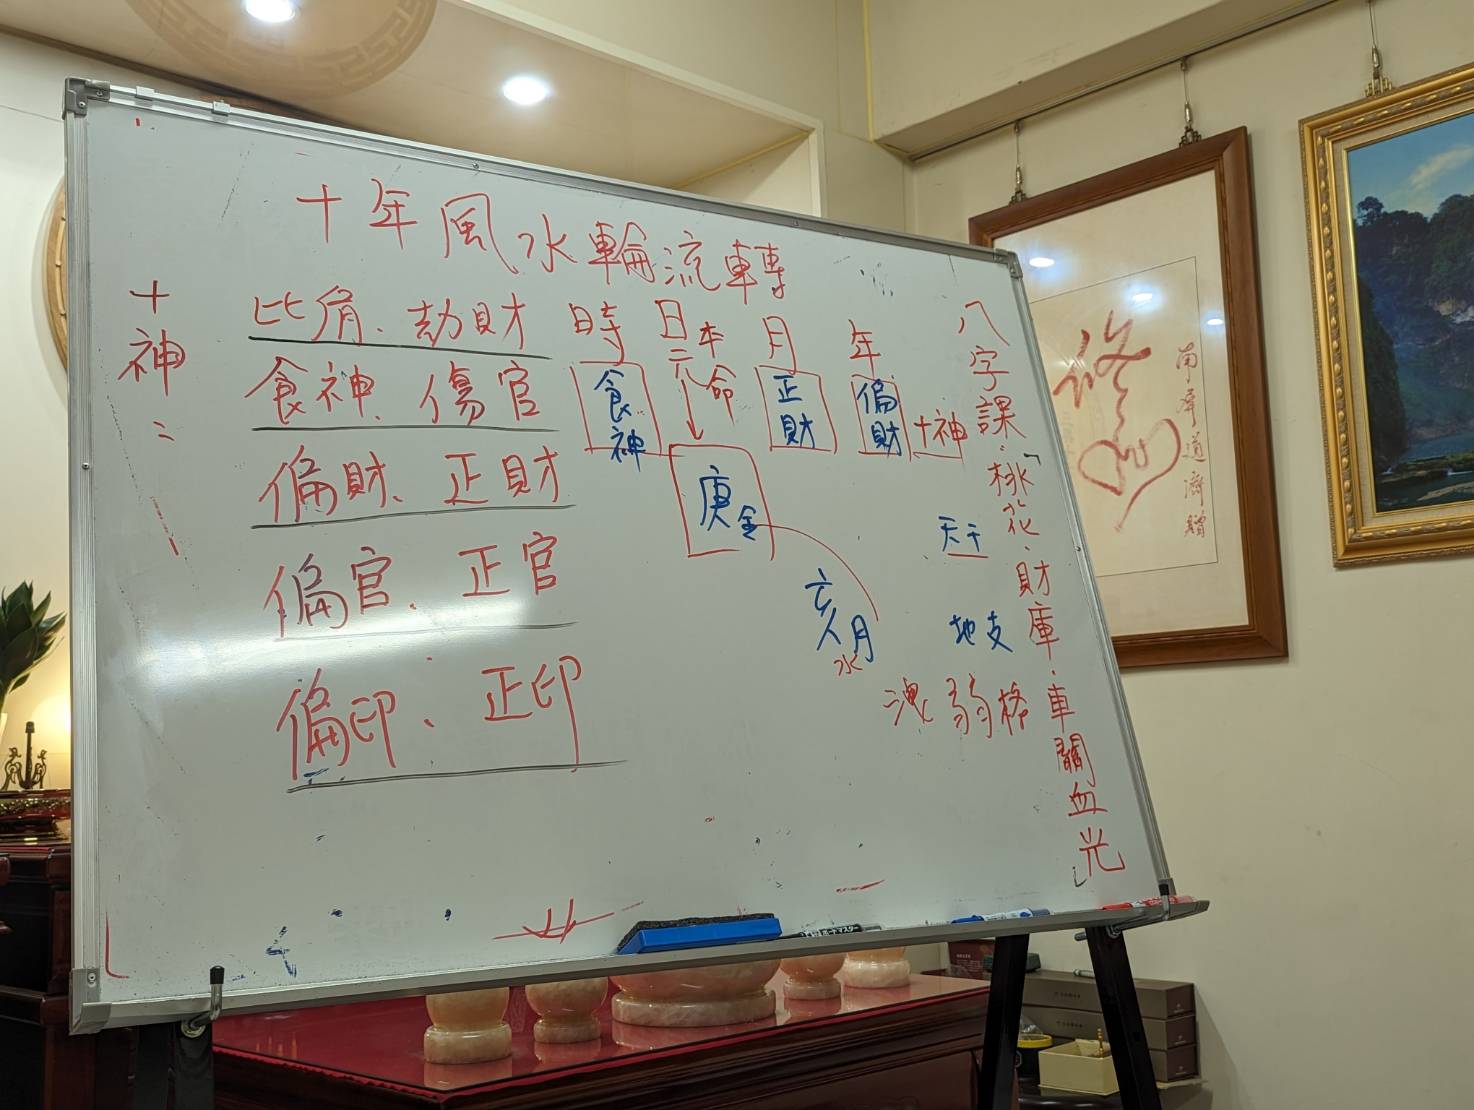 十年風水輪流轉
八字課:「桃花、財庫、車關血光」
十神:
比肩、劫財
食神、傷官
偏財、正財
偏官、正官
偏印、正印
時
日元
本命
月
年
食神
正財
偏財
十神
庚金
天干
亥月
水
地支
洩弱格
修心
南屏道濟贈